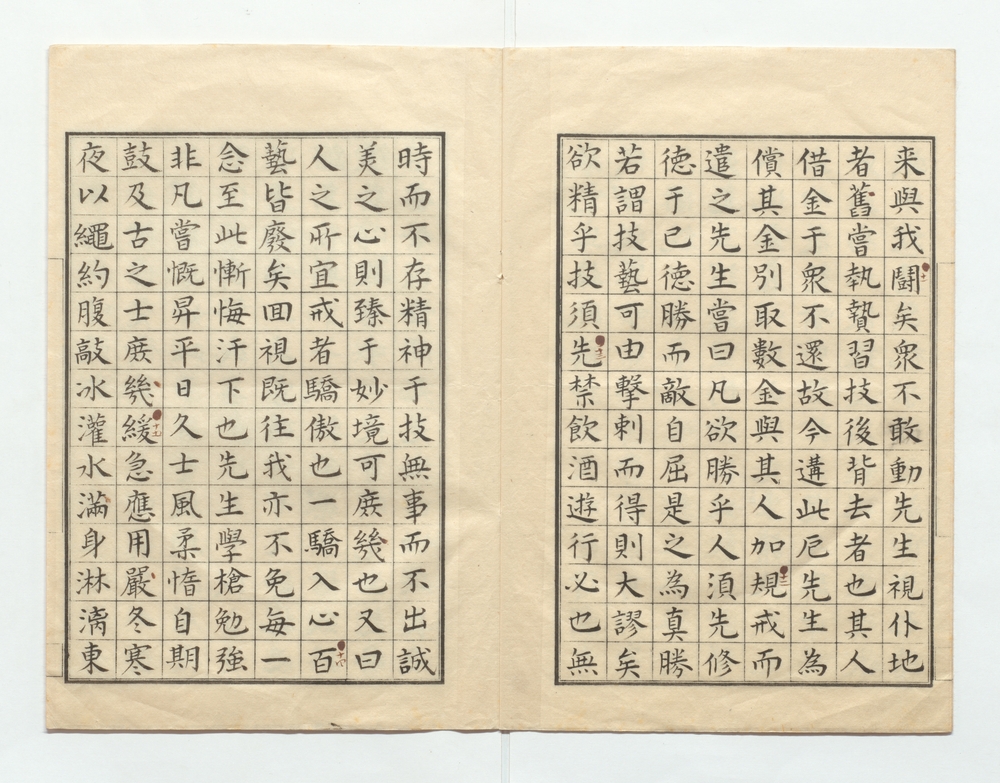 来與我鬪矣衆不敢動先生視仆地
者舊嘗執贄習技後背去者也其人
借金于衆不還故今遘此厄先生為
償其金別取數金與其人加規戒而
遣之先生嘗曰凡欲勝乎人須先修
徳于已徳勝而敵自屈是之為真勝
若謂技藝可由擊刺而得則大謬矣
欲精乎技須先禁飲酒遊行必也無
時而不存精神于技無事而不出誠
美之心則臻于妙境可庶幾也又曰
人之所宜戒者驕傲也一驕入心百
藝皆廢矣回視既往我亦不免每一
念至此慚悔汗下也先生學槍勉強
非凡嘗慨昇平日久士風柔惰自期
鼓及古之士庶幾緩急應用嚴冬寒
夜以繩約腹敲冰灌水滿身淋漓東
十一
十二
十三
十四
十五